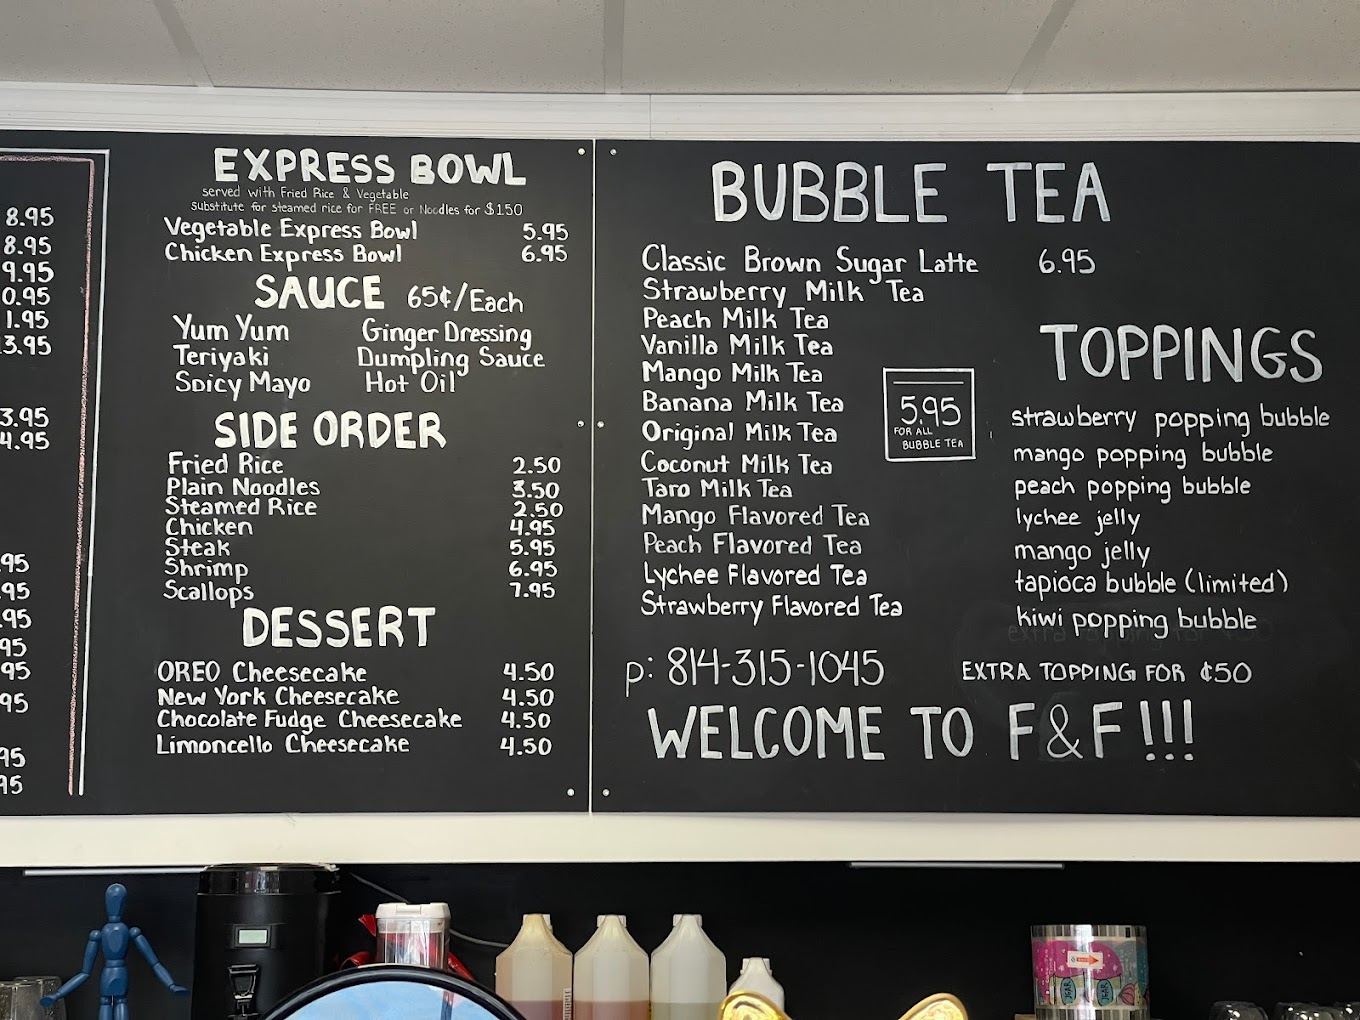 8.95
8.95
9.95
0.95
1.95
3.95
3.95
4.95
95
95
95
95
95
95
95
95
EXPRESS BOWL
served with Fried Rice & Vegetable
Substitute for steamed rice for FREE or Noodles for $1.50
Vegetable Express Bowl 5.95
Chicken Express Bowl 6.95
SAUCE 65¢/Each
Yum Yum Ginger Dressing
Teriyaki Dumpling Sauce
Spicy Mayo Hot Oil
SIDE ORDER
Fried Rice 2.50
Plain Noodles 3.50
Steamed Rice 2.50
Chicken 4.95
Steak 5.95
Shrimp 6.95
Scallops 7.95
DESSERT
OREO Cheesecake 4.50
New York Cheesecake 4.50
Chocolate Fudge Cheesecake 4.50
Limoncello Cheesecake 4.50
BUBBLE TEA
Classic Brown Sugar Latte 6.95
Strawberry Milk Tea
Peach Milk Tea
Vanilla Milk Tea
Mango Milk Tea
Banana Milk Tea
Original Milk Tea
Coconut Milk Tea
Taro Milk Tea
Mango Flavored Tea
Peach Flavored Tea
Lychee Flavored Tea
Strawberry Flavored Tea
5.95
FOR ALL
BUBBLE TEA
TOPPINGS
strawberry popping bubble
mango popping bubble
peach popping bubble
lychee jelly
mango jelly
tapioca bubble (limited)
kiwi popping bubble
EXTRA TOPPING FOR ¢50
p: 814-315-1045
WELCOME TO F&F!!!